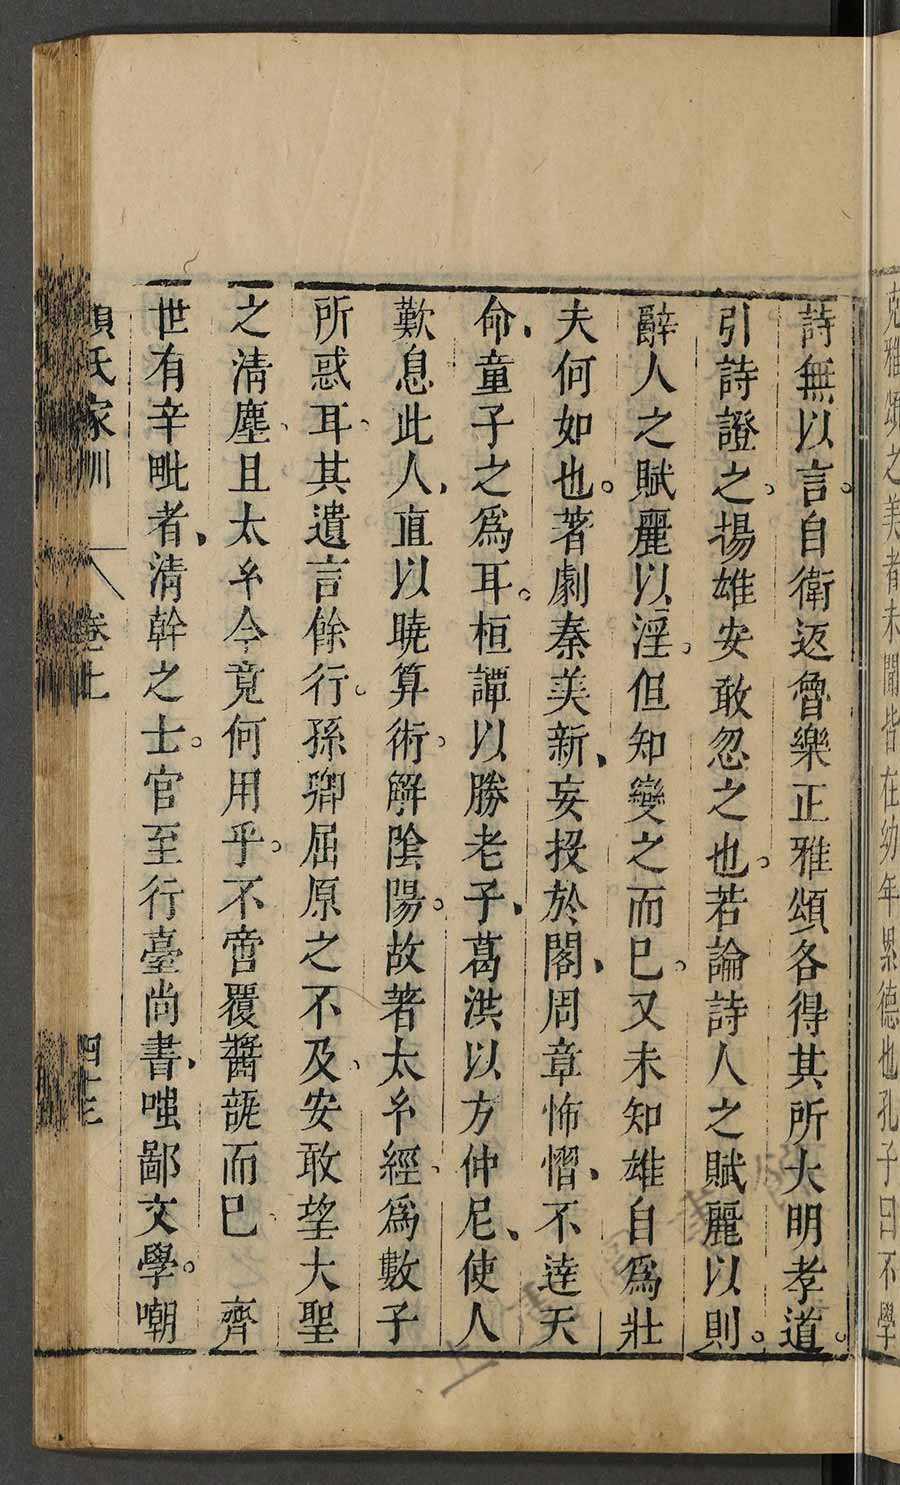 克雅頌之美者未聞皆在幼年累德也孔子曰不學
詩無以言。自衛返魯樂正雅頌各得其所大明孝道。
引詩證之、揚雄安敢忽之也。若論詩人之賦麗以則。
辭人之賦麗以淫。但知變之而已。又未知雄自爲壯
夫何如也。著劇秦美新、妄投於閣、周章怖慴、不達天
命、童子之爲耳。桓譚以勝老子、葛洪以方仲尼、使人
歎息此人、直以曉算術、解陰陽。故著太𤣥經、爲數子
所惑耳、其遺言餘行。孫卿屈原之不及、安敢望大聖
之清塵、且太𤣥今竟何用乎。不啻覆醬瓿而已　齊
世有辛毗者、清幹之士。官至行臺尚書、嗤鄙文學。嘲
顏氏家訓 卷上